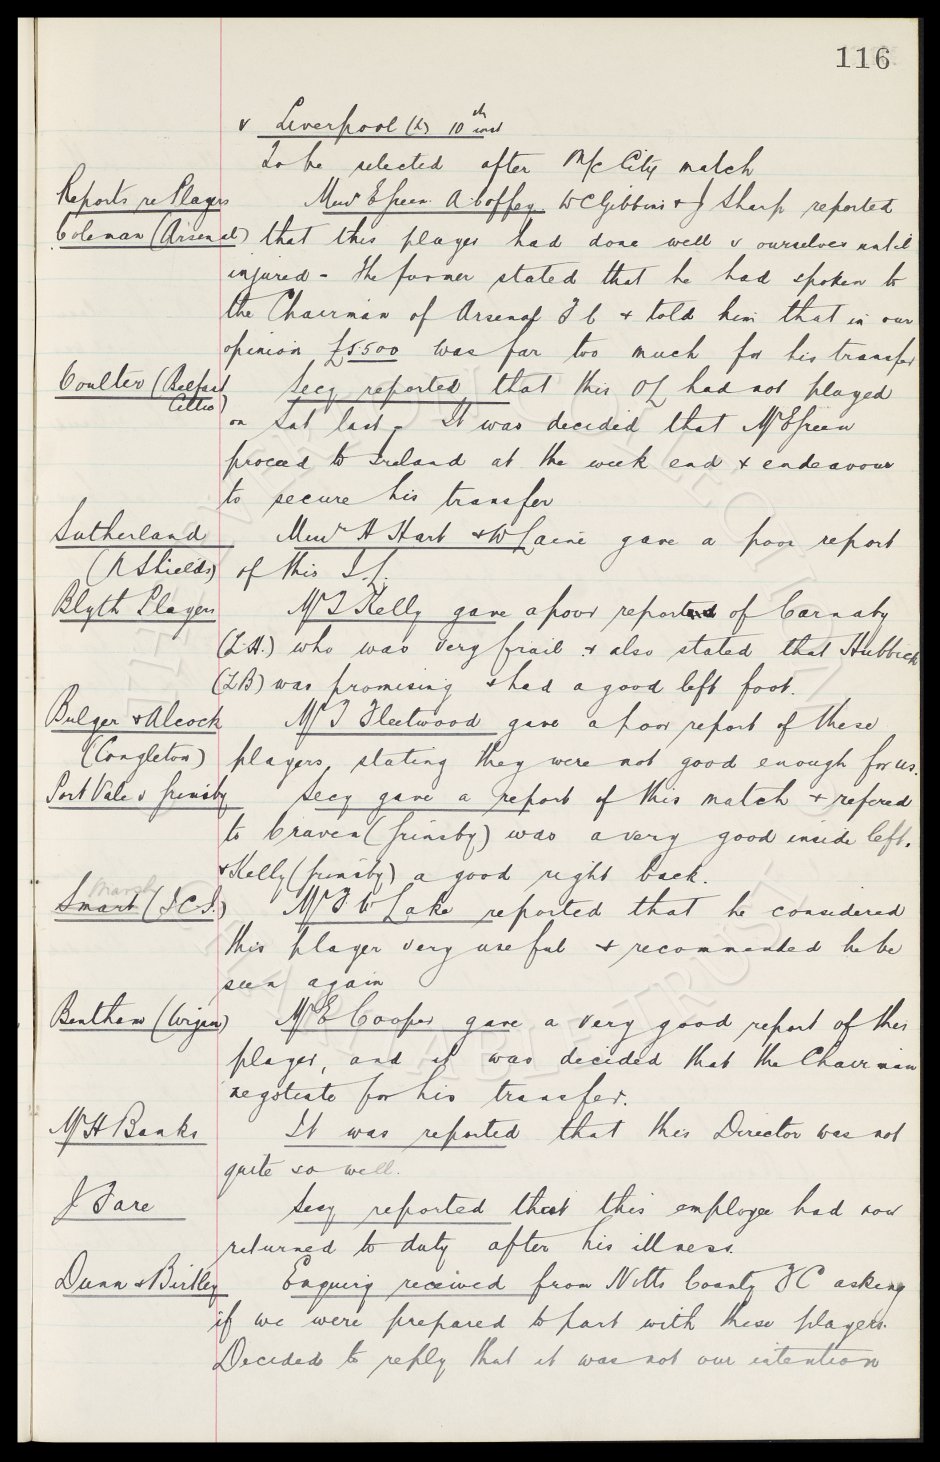 116
v Liverpool (h) 10th inst
To be selected after M/c City match
Reports re Players Messrs E Green A Coffey W C Gibbins & J Sharp reported
Coleman (Arsenal) that this player had done well v ourselves until
injured - The former stated that he had spoken to
the Chairman of Arsenal F C & told him that in our
opinion £5500 was far too much for his transfer
Coulter (Belfast Secy reported that this OL had not played
Celtic) on Sat last - It was decided that Mr E Green
proceed to Ireland at the week end & endeavour
to secure his transfer
Sutherland Messrs H Hart & W Laine gave a poor report
(N Shields) of this I.L.
Blyth Players Mr T Kelly gave a poor report of Carnaby
(L.H.) who was very frail & also stated that Hubbick
(LB) was promising & had a good left foot.
Bulger & Alcock Mr T Fleetwood gave a poor report of these
(Congleton) players, stating they were not good enough for us.
Port Vale v Grimsby Secy gave a report of this match & refered
to Craven (Grimsby) was a very good inside left,
& Kelly (Grimsby) a good right back.
Marsh
Smart (I.C.I.) Mr F W Lake reported that he considered
this player very useful & recommended he be
seen again
Bentham (Wigan) Mr E Cooper gave a very good report of this
player, and it was decided that the Chairman
negotiate for his transfer.
Mr H Banks It was reported that this Director was not
quite so well.
J Fare Secy reported that this employee had now
returned to duty after his illness.
Dunn & Birtley Enquiry received from Notts County FC asking
if we were prepared to part with these players.
Decided to reply that it was not our intention